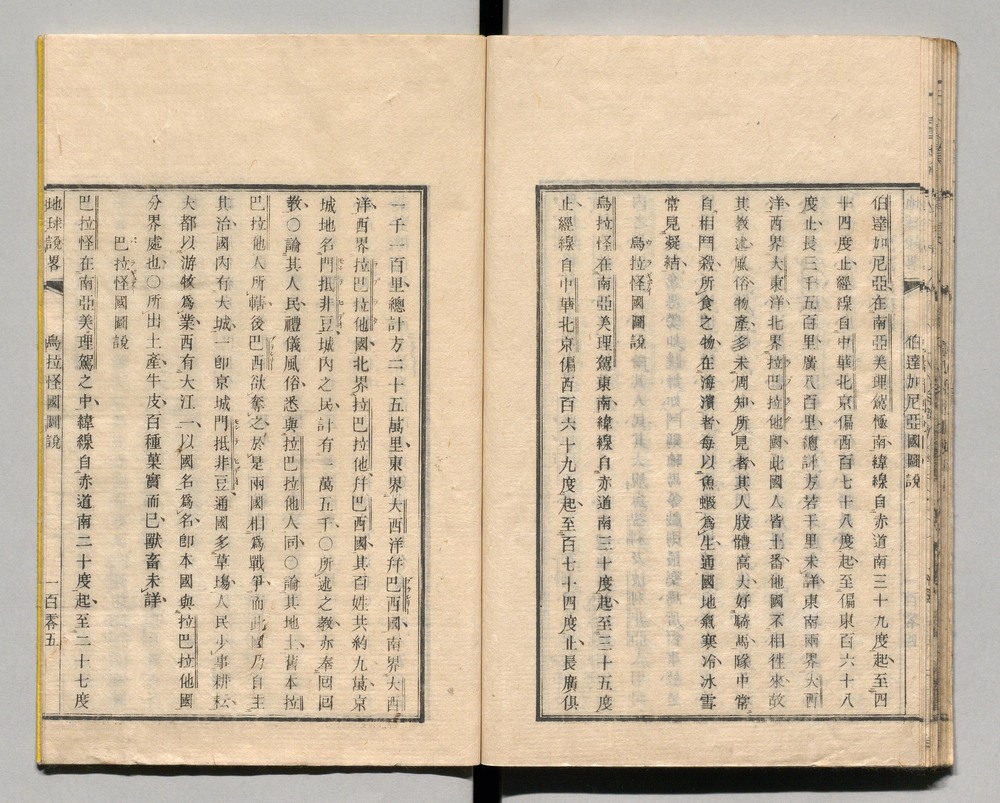 伯達加尼亞國圖說
伯達加尼亞在南亞美理駕極南緯線自赤道南三十九度起至四
十四度止經線自中華北京偏西百七十八度起至偏東百六十八
度止長三千五百里廣八百里總計方若干里未詳東南兩界大西
洋西界大東洋北界拉巴拉他國此國人皆土番他國不相徃來故
其教法風俗物產多未周知所見者其人肢體高大好騎馬隊中常
自相鬥殺所食之物在海濱者每以魚蝦為生通國地氣寒冷冰雪
常見凝結
烏拉怪國圖說
烏拉怪在南亞美理駕東南緯線自赤道南三十度起至三十五度
止經線自中華北京偏西百六十九度起至百七十四度止長廣俱
一千一百里總計方二十五萬里東界大西洋幷巴西國南界大西
洋西界拉巴拉他國北界拉巴拉他幷巴西國其百姓共約九萬京
城地名門抵非豆城內之民計有一萬五千〇所述之教亦奉囘囘
教〇論其人民禮儀風俗悉與拉巴拉他人同〇論其地土舊本拉
巴拉他人所轄後巴西欲奪之於是兩國相爲戰爭而此國乃自主
其治國內有大城一卽京城門抵非豆通國多草塲人民少事耕耘
大都以游牧爲業西有大江一以國名爲名卽本國與拉巴拉他國
分界處也〇所出土產牛皮百種菓實而已獸畜未詳
巴拉怪國圖說
巴拉怪在南亞美理駕之中緯線自赤道南二十度起至二十七度
地球說畧
烏拉怪國圖說
一百零五